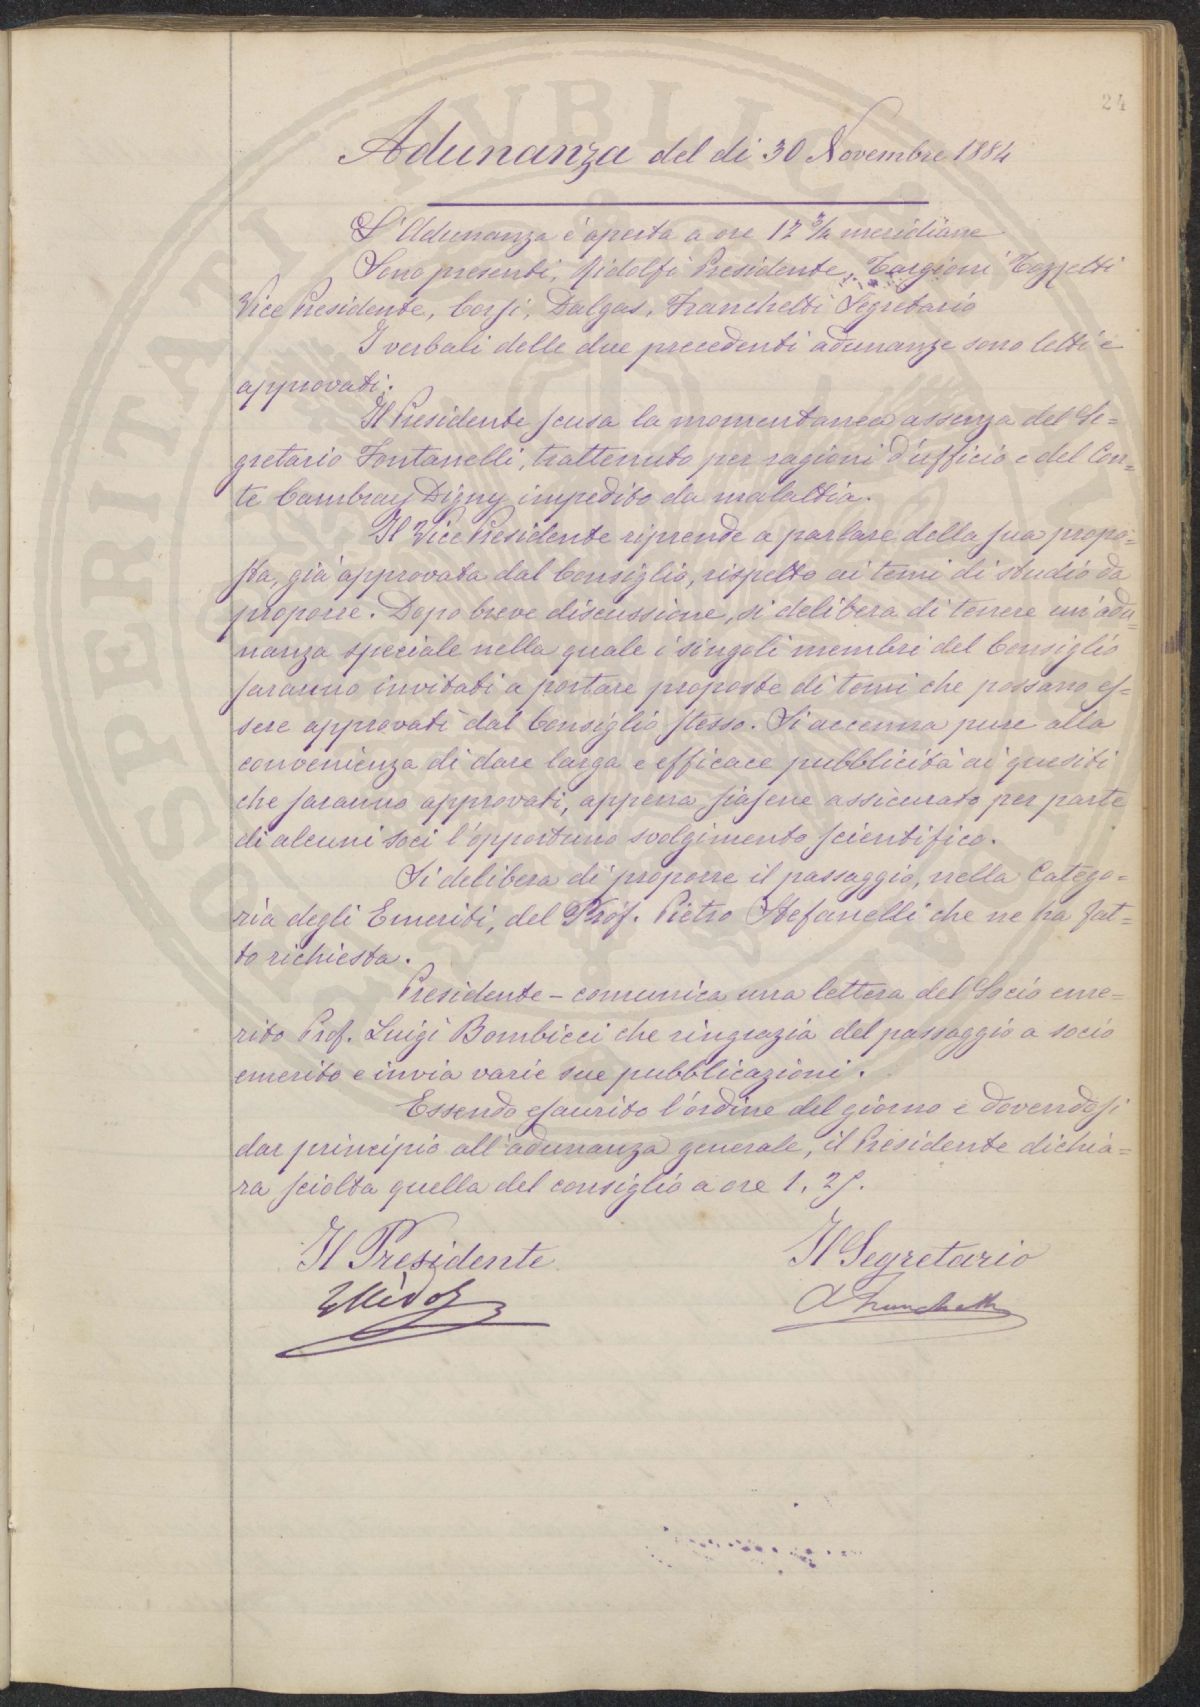 24
Adunanza del dì 30 Novembre 1884
L'Adunanza è aperta a ore 12 3/4 meridiane
Sono presenti, Ridolfi Presidente, Targioni Tozzetti
Vice Presidente, Corsi, Dalgas, Franchetti Segretario
I verbali delle due precedenti adunanze sono letti e
approvati.
Il Presidente scusa la momentanea assenza del Se=
gretario Fontanelli, trattenuto per ragioni d'ufficio e del Con=
te Cambray Digny impedito da malattia.
Il Vice Presidente riprende a parlare della sua propo=
sta, già approvata dal Consiglio, rispetto ai temi di studio da
proporre. Dopo breve discussione, si delibera di tenere un'adu=
nanza speciale nella quale i singoli membri del Consiglio
saranno invitati a portare proposte di temi che possano es=
sere approvati dal Consiglio stesso. Si accenna pure alla
convenienza di dare larga e efficace pubblicità ai quesiti
che saranno approvati, appena siasene assicurato per parte
di alcuni soci l'opportuno svolgimento scientifico.
Si delibera di proporre il passaggio, nella Catego=
ria degli Emeriti, del Prof. Pietro Stefanelli che ne ha fat=
to richiesta.
Presidente - comunica una lettera del Socio eme=
rito Prof. Luigi Bombicci che ringrazia del passaggio a socio
emerito e invia varie sue pubblicazioni.
Essendo esaurito l'ordine del giorno e dovendosi
dar principio all'adunanza generale, il Presidente dichia=
ra sciolta quella del consiglio a ore 1, 25.
Il Presidente Il Segretario
LRidolfi A Franchetti
PROSPERITATI PUBLICAE AUGENDAE